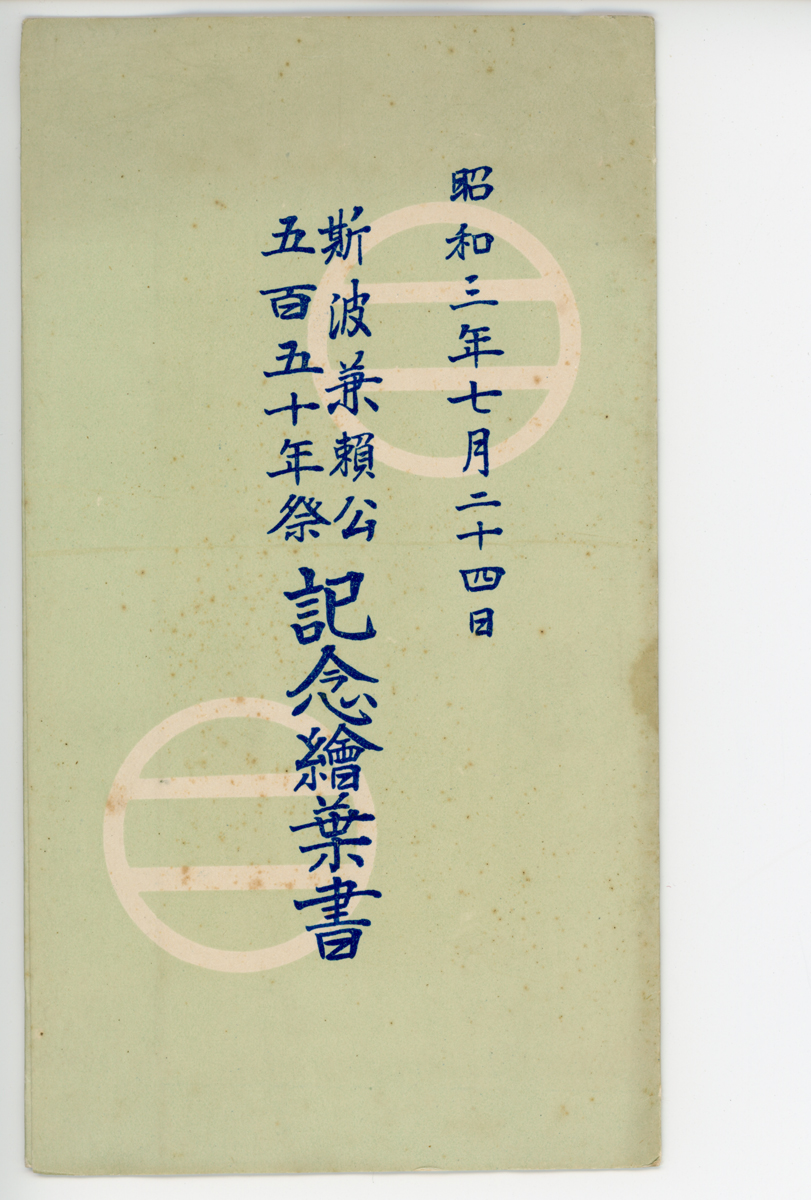 昭和三年七月二十四日
斯波兼頼公
五百五十年祭
記念繪葉書